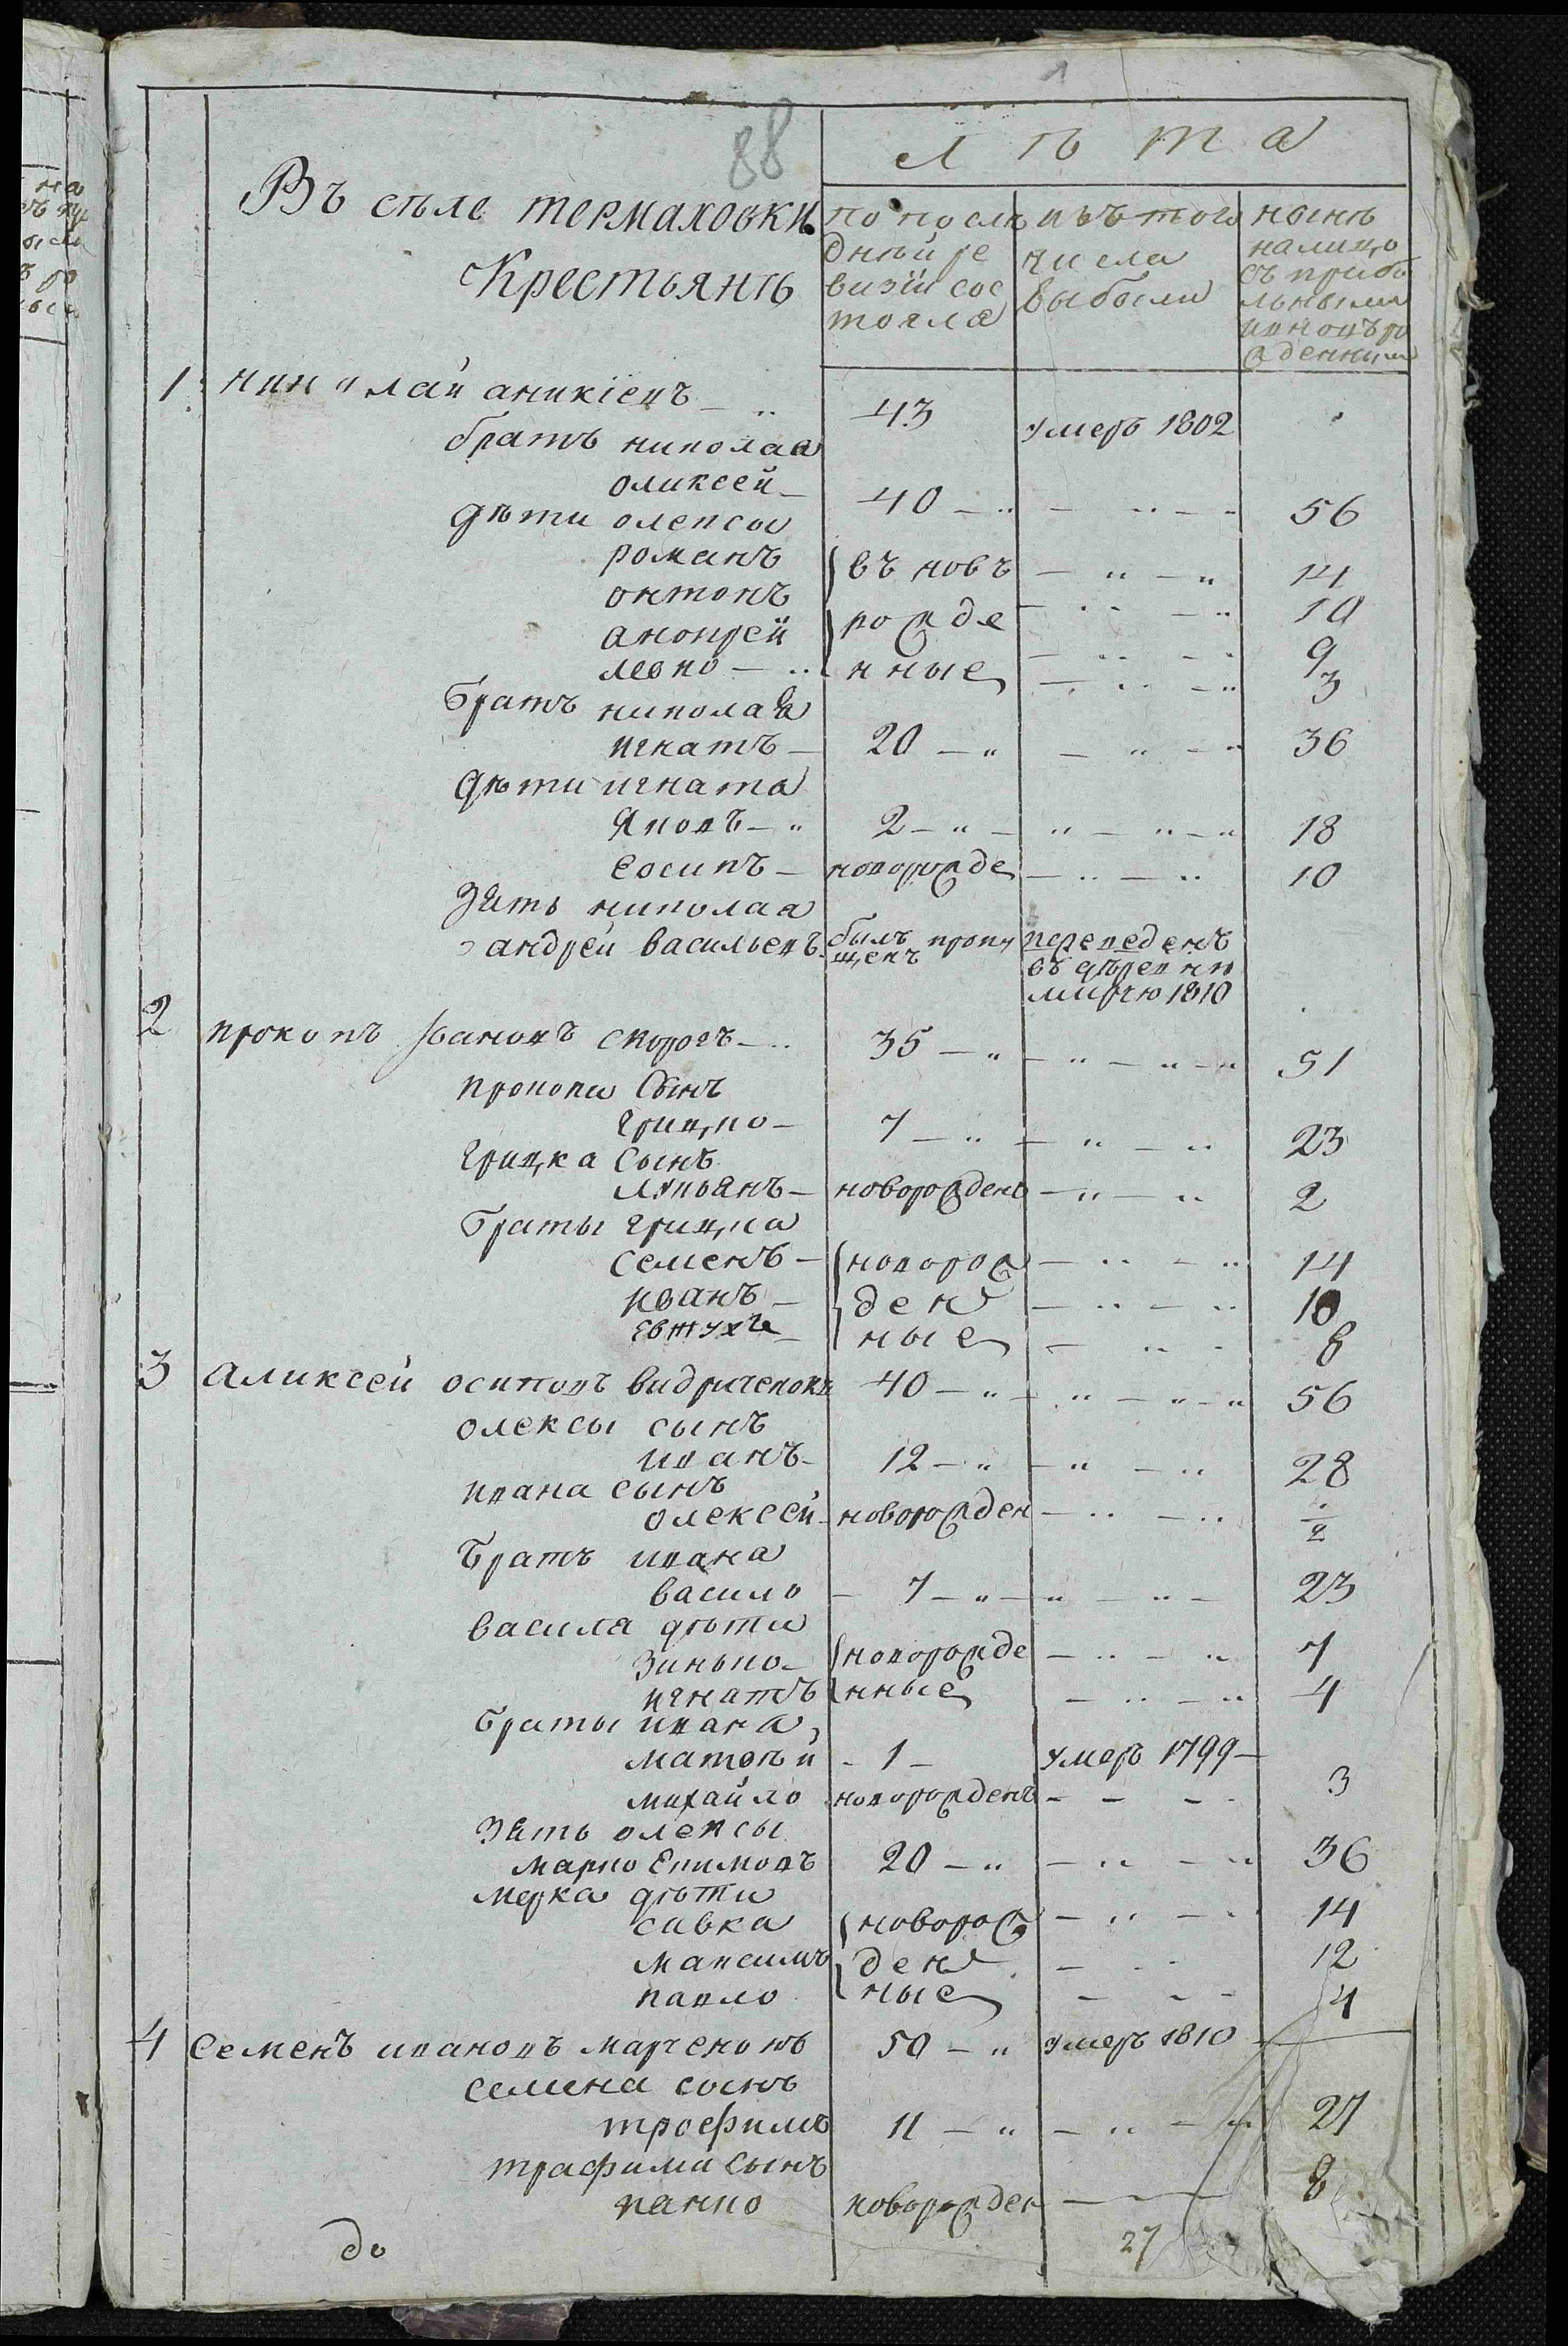 88
лѣта
Въ селѣ термаховки
Крестьянѣ
по послѣ
днѣй ре
визіи сос
тояла
изъ того
числа
выбыли
нынѣ
налицо
съ прибы
лыными
и новъ ро
жденными
1. николай аникіевъ 43 умеръ 1802
братъ николая
оликсей 40 56
дѣти олексы
романъ въ новъ 14
онтонъ рожде 10
анопрей 9
левко нные 3
братъ николая
игнатъ 20 36
дѣти игната
яковъ 2 18
есипъ новорожде 10
зять николая
андрей васильевъ былъ пропу щенъ переведенъ
въ дѣревню
1810
2 прокопъ Ивановъ скорогъ 35 51
прокопа сынъ
грицко 7 23
грицка сынъ
лукьянъ новорожденъ 2
браты грицка
семенъ новорож 14
иванъ ден 10
евтухъ ные 8
3 аликсей осиповъ видриченокъ 40 56
олексы сынъ
иванъ 12 28
ивана сынъ
олексей новорожден ½
братъ ивана
василь 7 23
василя дѣти
зинько новорожде 7
игнатъ нные 4
браты ивана
матвѣй 1 умеръ 1799
михайло новорожденъ 3
зять олексы
марко Екимовъ 20 36
марка дѣти
савка новорож 14
максимъ ден 12
павло ные 4
4 семенъ ивановъ марченокъ 50 умеръ 1810
семена сынъ
трофимъ 11 27
трафима сынъ
панко новорожден 8
27
до